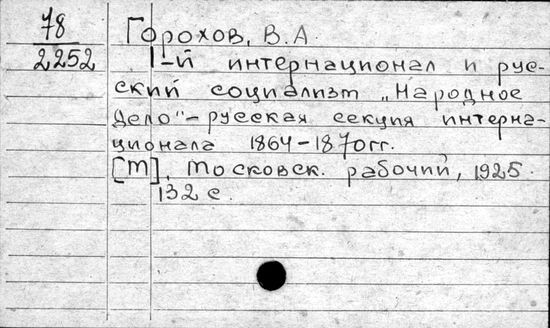 78
2252
Горохов, В.А.
1-й интернационал и рус-
ский социализм „Народное
Дело"-русская секция интерна-
ционала 1864-1870гг.
[М], Московск. рабочий, 1925.
132 с.